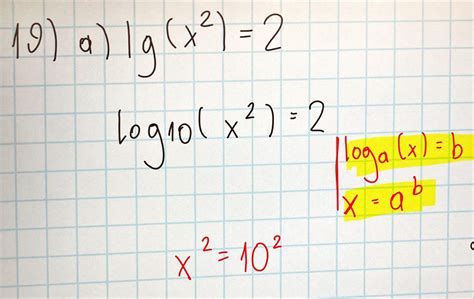 19) a) lg(x²) = 2
log10(x²) = 2
logₐ(x) = b
x = aᵇ
x² = 10²